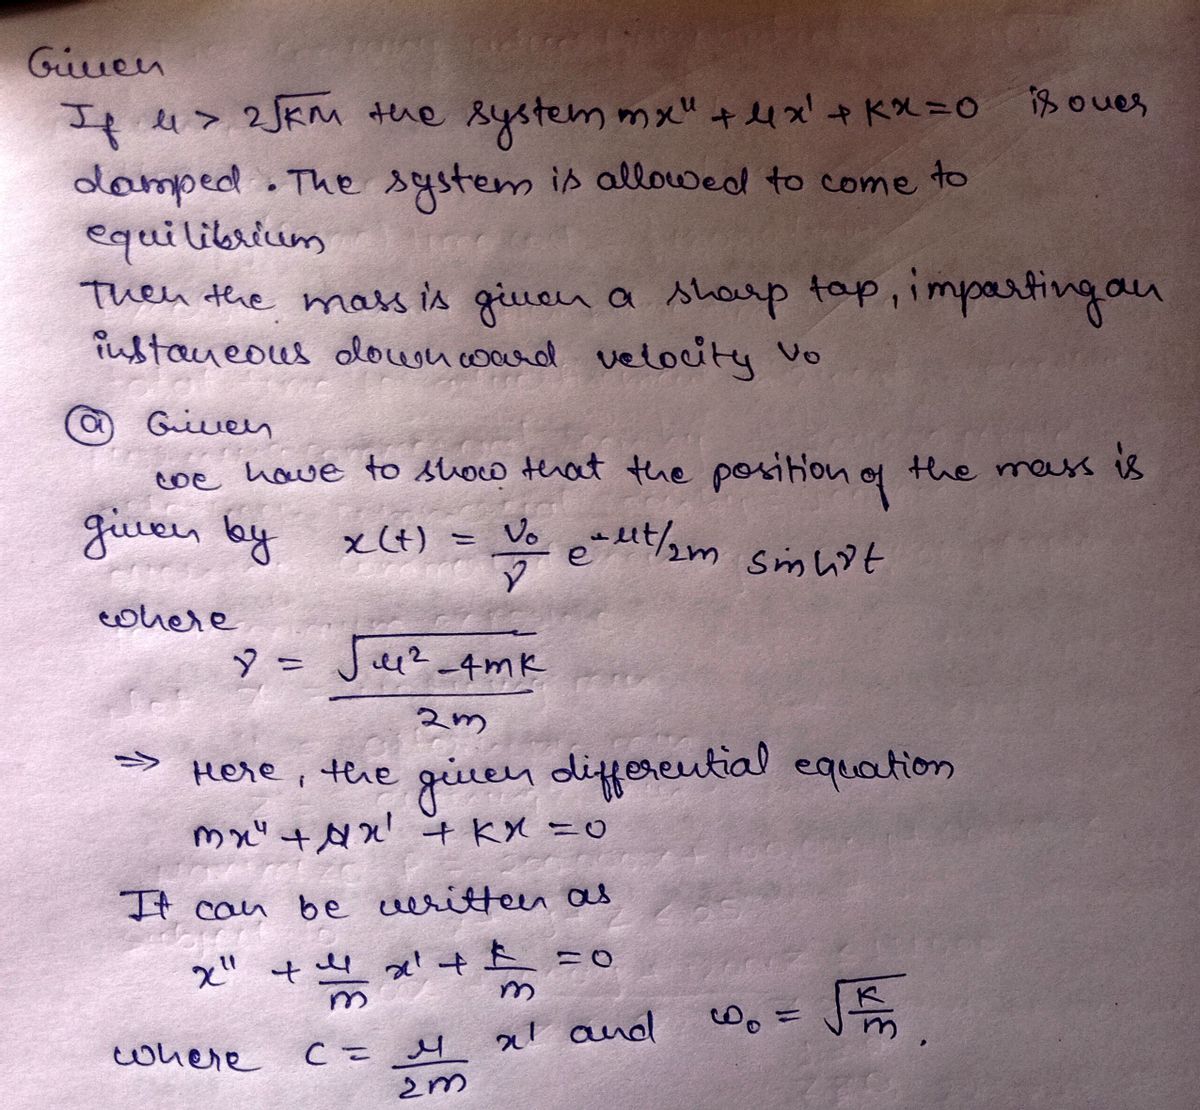 Given
If μ > 2√km the system mx" + μx' + kx = 0 is over
damped. The system is allowed to come to
equilibrium
Then the mass is given a sharp tap, imparting an
instaneous downward velocity v₀
ⓐ Given
we have to show that the position of the mass is
given by x(t) = v₀/γ e^-μt/2m sinhγt
where
γ = √μ²-4mk / 2m
⇒ Here, the given differential equation
mx" + μx' + kx = 0
It can be written as
x" + μ/m x' + k/m = 0
where c = μ/2m x' and ω₀ = √k/m.